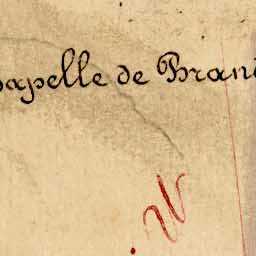 apelle de Bran